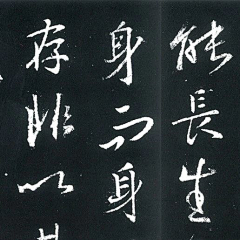 能長生
身而身
存非以其